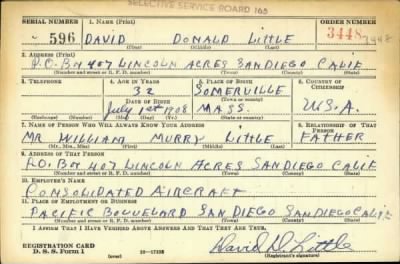 SELECTIVE SERVICE BOARD 165
SERIAL NUMBER 1. NAME (Print) ORDER NUMBER
596 DAVID DONALD LITTLE 3448
(First) (Middle) (Last)
2. ADDRESS (Print)
P.O. BOX 407 LINCOLN ACRES SAN DIEGO CALIF
(Number and street or R. F. D. number) (Town) (County) (State)
3. TELEPHONE 4. AGE IN YEARS 5. PLACE OF BIRTH 6. COUNTRY OF CITIZENSHIP
32 SOMERVILLE
DATE OF BIRTH (Town or county)
July 1st 1908 MASS. U.S.A.
(Exchange) (Number) (Mo.) (Day) (Yr.) (State or country)
7. NAME OF PERSON WHO WILL ALWAYS KNOW YOUR ADDRESS 8. RELATIONSHIP OF THAT PERSON
MR WILLIAM MURRY LITTLE FATHER
(Mr., Mrs., Miss) (First) (Middle) (Last)
9. ADDRESS OF THAT PERSON
P.O. BOX 407 LINCOLN ACRES SAN DIEGO CALIF
(Number and street or R. F. D. number) (Town) (County) (State)
10. EMPLOYER'S NAME
CONSOLIDATED AIRCRAFT
11. PLACE OF EMPLOYMENT OR BUSINESS
PACIFIC BOULELARD SAN DIEGO SAN DIEGO CALIF
(Number and street or R. F. D. number) (Town) (County) (State)
I AFFIRM THAT I HAVE VERIFIED ABOVE ANSWERS AND THAT THEY ARE TRUE.
REGISTRATION CARD
D. S. S. Form 1 (over) David D. Little
(Registrant's signature)